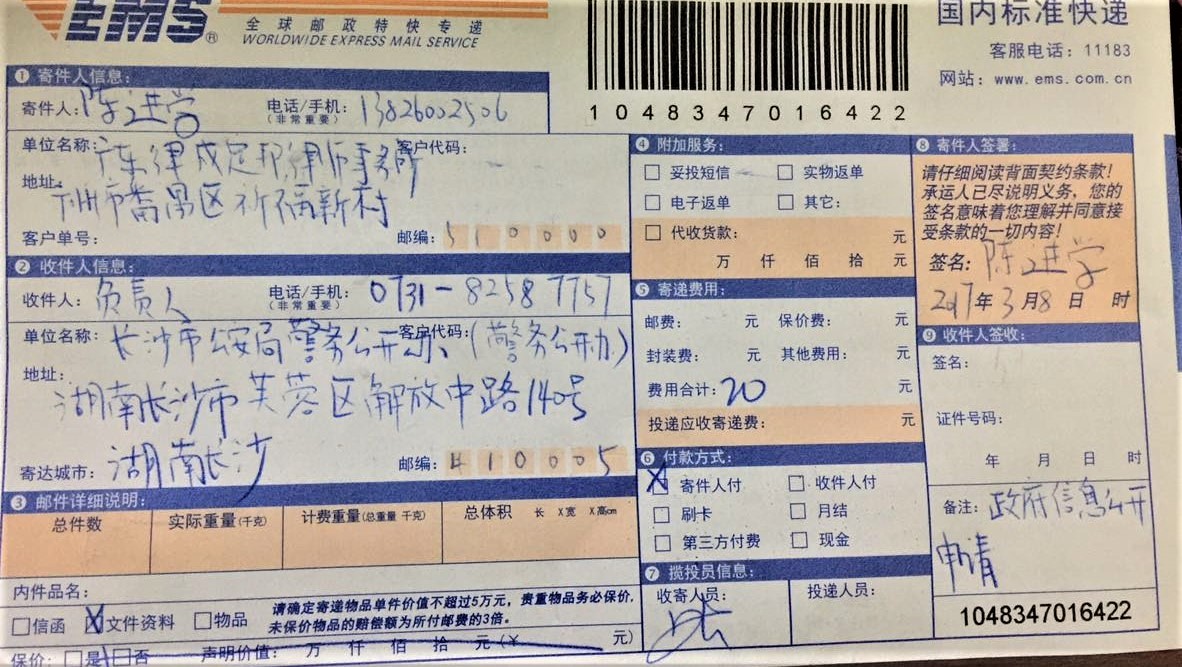 EMS®
全球邮政特快专递
WORLDWIDE EXPRESS MAIL SERVICE
1048347016422
国内标准快递
客服电话：11183
网站：www.ems.com.cn
❶ 寄件人信息：
寄件人：陈进学 电话/手机：13826002506
（非常重要）
单位名称：广东律成定邦律师事务所 客户代码：
地址：广州市番禺区祈福新村
客户单号： 邮编：510000
❷ 收件人信息：
收件人：负责人 电话/手机：0731-82587757
（非常重要）
单位名称：长沙市公安局警务公开办（警务公开办） 客户代码：
地址：湖南长沙市芙蓉区解放中路140号
寄达城市：湖南长沙 邮编：410005
❸ 邮件详细说明：
总件数 实际重量（千克） 计费重量（总重量 千克） 总体积 长 X宽 X高cm
内件品名：
□信函 ☒文件资料 □物品
请确定寄递物品单件价值不超过5万元，贵重物品务必保价，
未保价物品的赔偿额为所付邮费的3倍。
保价：□是 □否 声明价值： 万 仟 佰 拾 元（￥ 元）
❹ 附加服务：
□ 妥投短信 □ 实物返单
□ 电子返单 □ 其它：
□ 代收货款： 元
万 仟 佰 拾 元
❺ 寄递费用：
邮费： 元 保价费： 元
封装费： 元 其他费用： 元
费用合计：20 元
投递应收寄递费： 元
❻ 付款方式：
☒ 寄件人付 □ 收件人付
□ 刷卡 □ 月结
□ 第三方付费 □ 现金
❼ 揽投员信息：
收寄人员： 投递人员：
❽ 寄件人签署：
请仔细阅读背面契约条款！
承运人已尽说明义务，您的
签名意味着您理解并同意接
受条款的一切内容！
签名：陈进学
2017年3月8日 时
❾ 收件人签收：
签名：
证件号码：
年 月 日 时
备注：政府信息公开
申请
1048347016422